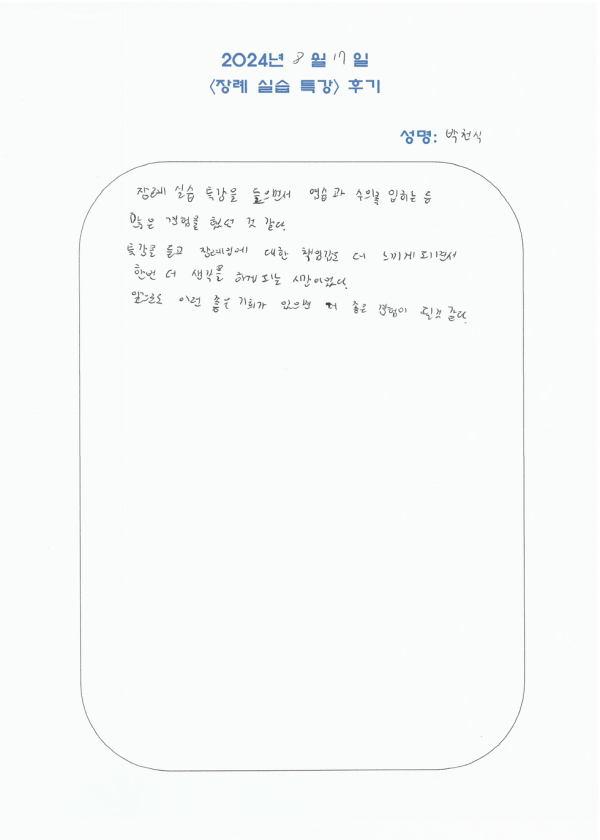 2024년 8월 17일
<장례 실습 특강> 후기
성명: 박천식
장례 실습 특강을 들으면서 염습과 수의를 입히는 등
많은 경험를 했던 것 같다.
특강를 듣고 장례업에 대한 책임감도 더 느끼게 되면서
한번 더 생각를 하게 되는 시간이었다.
앞으로도 이런 좋은 기회가 있으면 더 좋은 경험이 될것 같다.